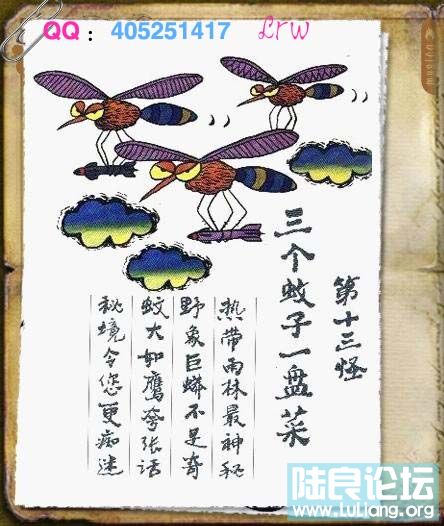 QQ：405251417 Lrw
第十三怪
三个蚊子一盘菜
热带雨林最神秘
野象巨蟒不是奇
蚊大如鹰夸张话
秘境令您更痴迷
陆良论坛
www.luliang.org